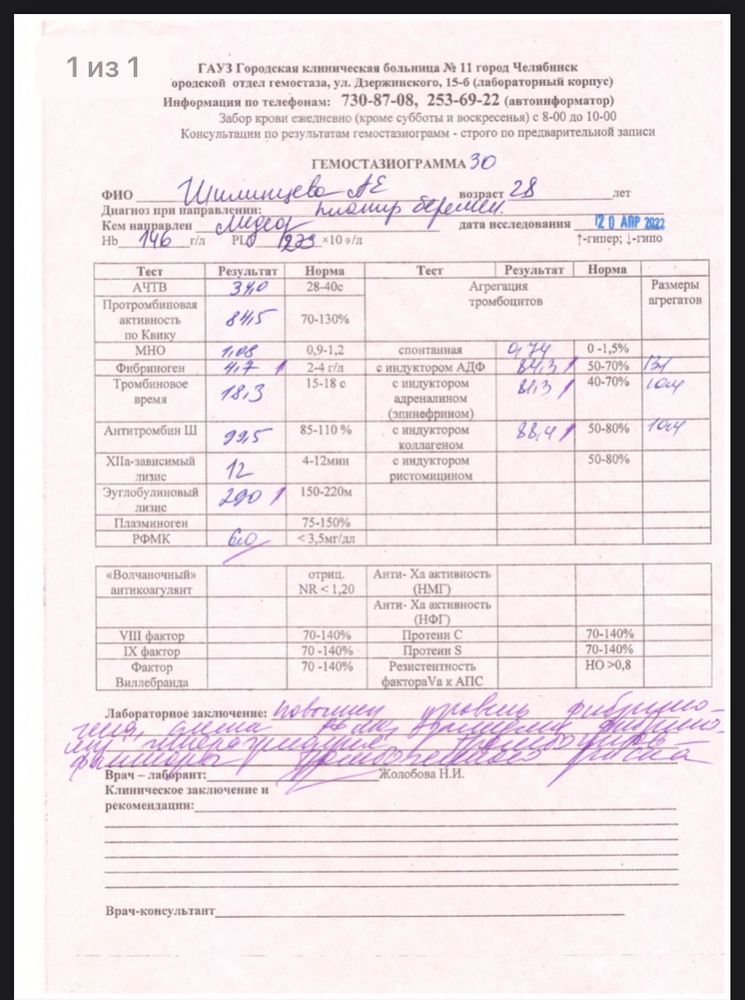 1 из 1
ГАУЗ Городская клиническая больница № 11 город Челябинск
ородской отдел гемостаза, ул. Дзержинского, 15-б (лабораторный корпус)
Информация по телефонам: 730-87-08, 253-69-22 (автоинформатор)
Забор крови ежедневно (кроме субботы и воскресенья) с 8-00 до 10-00
Консультации по результатам гемостазиограмм - строго по предварительной записи
ГЕМОСТАЗИОГРАММА 30
ФИО АЕ возраст 28 лет
Диагноз при направлении: планир беремен.
Кем направлен дата исследования 20 АПР 2022
Hb 146 г/л PL 223 ×10 9/л ↑-гипер; ↓-гипо
Тест Результат Норма Тест Результат Норма Размеры агрегатов
АЧТВ 34,0 28-40с Агрегация тромбоцитов
Протромбиновая активность по Квику 84,5 70-130%
МНО 1,08 0,9-1,2 спонтанная 0,74 0 -1,5%
Фибриноген 4,7 ↑ 2-4 г/л с индуктором АДФ 84,3 ↑ 50-70%
Тромбиновое время 18,3 15-18 с с индуктором адреналином (эпинефрином) 81,3 ↑ 40-70%
Антитромбин Ш 99,5 85-110 % с индуктором коллагеном 88,4 ↑ 50-80%
XIIа-зависимый лизис 12 4-12мин с индуктором ристомицином 50-80%
Эуглобулиновый лизис 290 ↑ 150-220м
Плазминоген 75-150%
РФМК 6,0 < 3,5мг/дл
«Волчаночный» антикоагулянт отриц. NR < 1,20 Анти- Ха активность (НМГ)
Анти- Ха активность (НФГ)
VIII фактор 70-140% Протеин С 70-140%
IX фактор 70 -140% Протеин S 70-140%
Фактор Виллебранда 70 -140% Резистентность фактораVа к АПС НО >0,8
Лабораторное заключение: повышен уровень фибрино-
гена,
гиперагрегация,
факторы риска
Врач – лаборант: Жолобова Н.И.
Клиническое заключение и
рекомендации:
Врач-консультант